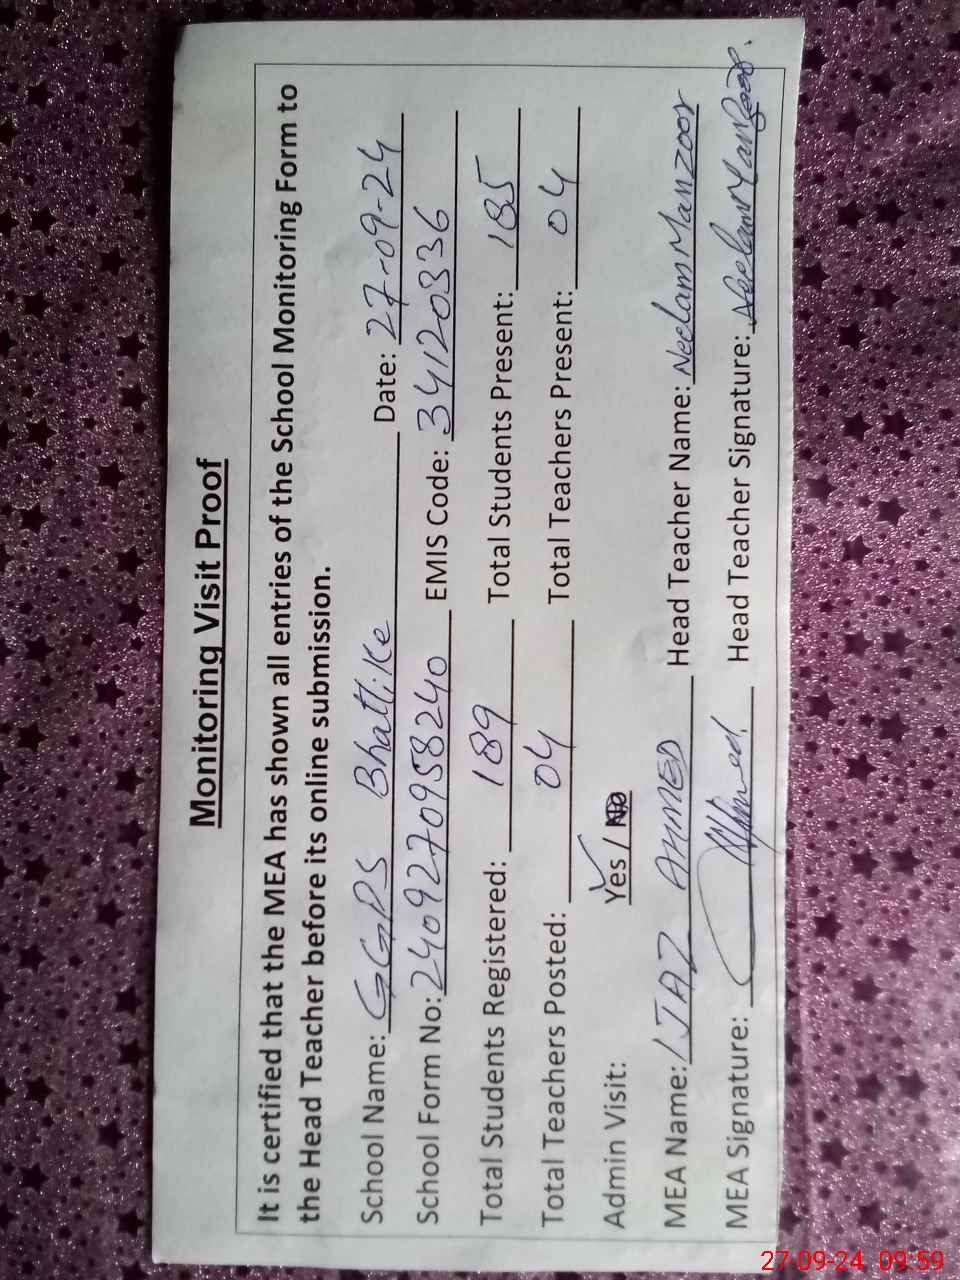 Monitoring Visit Proof
It is certified that the MEA has shown all entries of the School Monitoring Form to
the Head Teacher before its online submission.
School Name: GGPS Bhattike Date: 27-09-24
School Form No: 2409270958240 EMIS Code: 34120336
Total Students Registered: 189 Total Students Present: 185
Total Teachers Posted: 04 Total Teachers Present: 04
Admin Visit: Yes / No
MEA Name: IJAZ AHMED Head Teacher Name: Neelam Manzoor
MEA Signature: Ahmed. Head Teacher Signature: Neelam Manzoor.
27-09-24 09:59